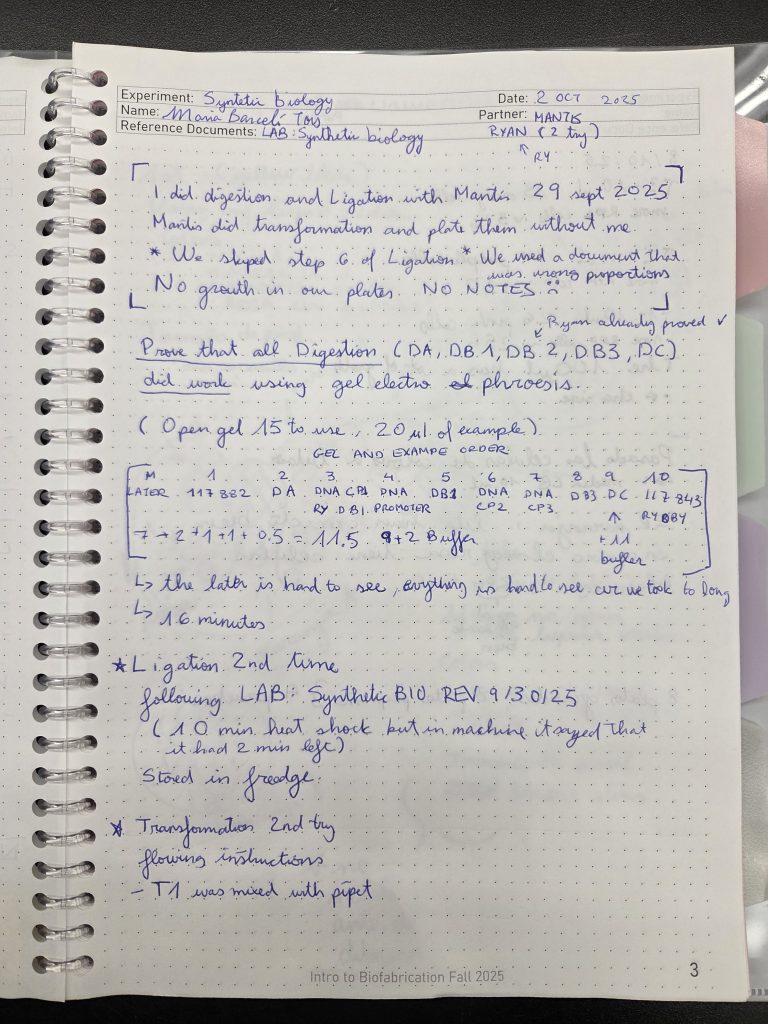 Experiment: Syntetic biology
Date: 2 OCT 2025
Name: Maria Barceló Tors
Partner: MANTIS
Reference Documents: LAB: Synthetic biology
RYAN (2 try)
↑ RY
I did digestion and Ligation with Mantis 29 sept 2025
Mantis did transformation and plate them without me.
* We skiped step 6 of Ligation * We used a document that
was wrong proportions
No growth in our plates. NO NOTES :(
Ryan already proved ✓
Prove that all Digestion (DA, DB1, DB2, DB3, DC)
did work using gel electro phroesis.
(Open gel 15 to use, 20 µl of example)
GEL AND EXAMPE ORDER
M 1 2 3 4 5 6 7 8 9 10
LATER 117882 DA DNA CP1 DNA DB1 DNA DNA DB3 DC 117843
RY DB1 PROMOTER CP2 CP3 ↑ RY
7+2+1+1+0.5 = 11.5 9+2 Buffer +11
buffer
↳ the latter is hard to see, evything is hard to see cuz we took to long
↳ 16 minutes
* Ligation 2nd time
following LAB: Synthetic BIO REV 9/30/25
(10 min heat shock but in machine it sayed that
it had 2 min left)
Stored in freedge.
* Transformation 2nd try
flowing instructions
- T1 was mixed with pipet
Intro to Biofabrication Fall 2025
3